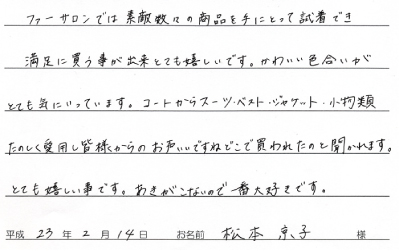 ファーサロンでは素敵数々の商品を手にとって試着でき
満足に買う事が出来とても嬉しいです。かわいい色合いが
とても気にいっています。コートからスーツ・ベスト・ジャケット・小物類
たのしく愛用し皆様からのお声いいですねどこで買われたのと聞かれます。
とても嬉しい事です。あきがこないので一番大好きです。
平成 23 年 2 月 14 日 お名前 松本 京子 様